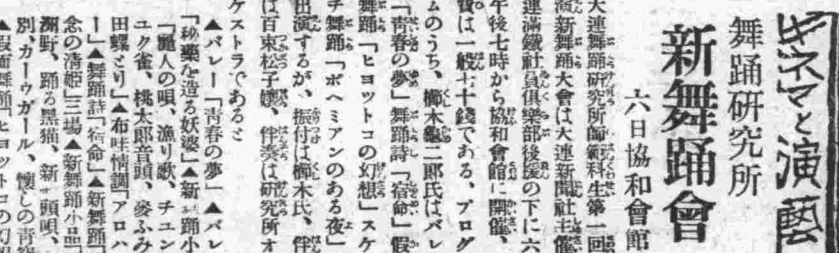 キネマと演藝
舞踊研究所
新舞踊會
六日協和會館
大連舞踊研究所師範科生第一回
演新舞踊大會は大連新聞社主催
連滿鐵社員俱樂部後援の下に六
午後七時から協和會館に開催、
費は一般七十錢である、プログ
ムのうち、櫛木龜二郎氏はバレ
「靑春の夢」舞踊詩「宿命」假
舞踊「ヒヨツトコの幻想」スケ
チ舞踊「ボヘミアンのある夜」
出演するが、振付は櫛木氏、伴
は百束松子孃、伴奏は硏究所オ
ケストラであると
▲バレー「靑春の夢」▲バレ
「秘藥を造る妖婆」▲新舞踊小
「麗人の唄、漁り歌、チユン
ユク雀、桃太郎音頭、麥ふみ
田螺とり」▲布哇情調「アロハ
ー」▲舞踊詩「宿命」▲新舞踊「
念の淸姬」三場▲新舞踊小品「
洲野、踊る黑猫、新 頭唄、
別、カーウガール、懷しの靑空
▲假面舞踊「ヒヨツトコの幻想